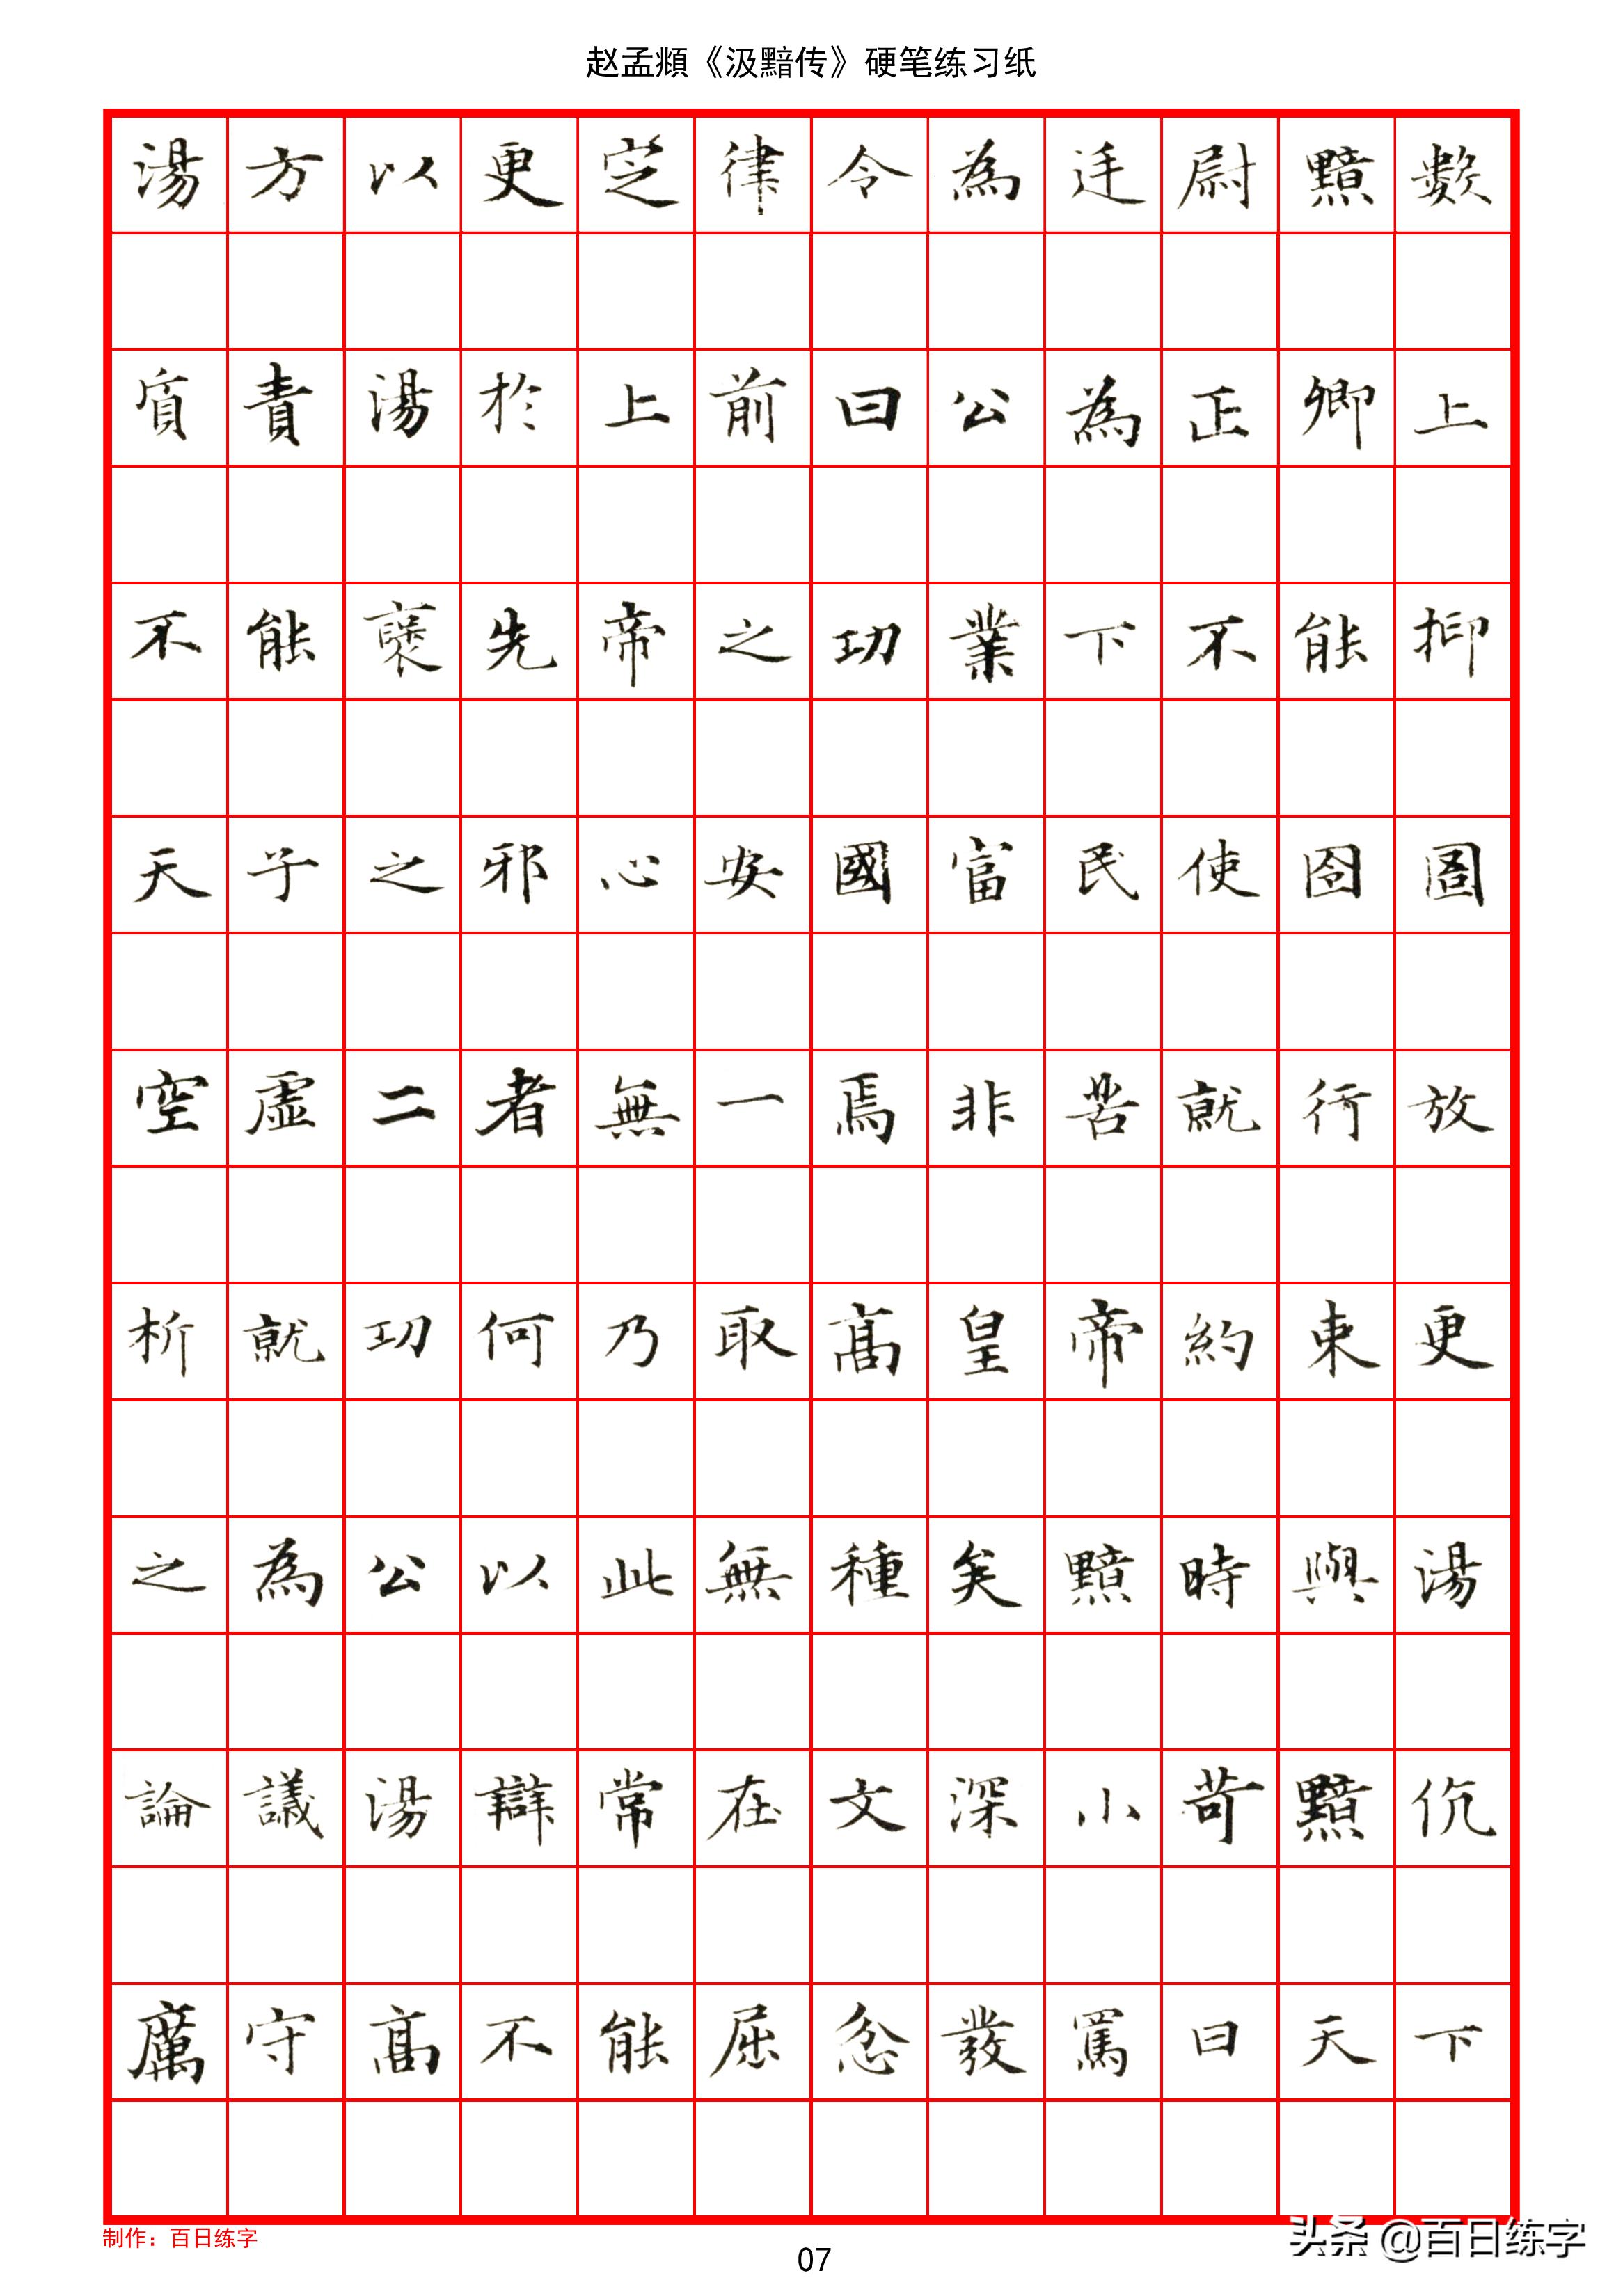 赵孟頫《汲黯传》硬笔练习纸
湯方以更定律令為廷尉黯數
質責湯於上前曰公為正卿上
不能襃先帝之功業下不能抑
天子之邪心安國富民使囹圄
空虛二者無一焉非苦就行放
析就功何乃取髙皇帝約束更
之為公以此無種矣黯時與湯
論議湯辯常在文深小苛黯伉
厲守髙不能屈忿發罵曰天下
制作：百日练字
07
头条 @百日练字